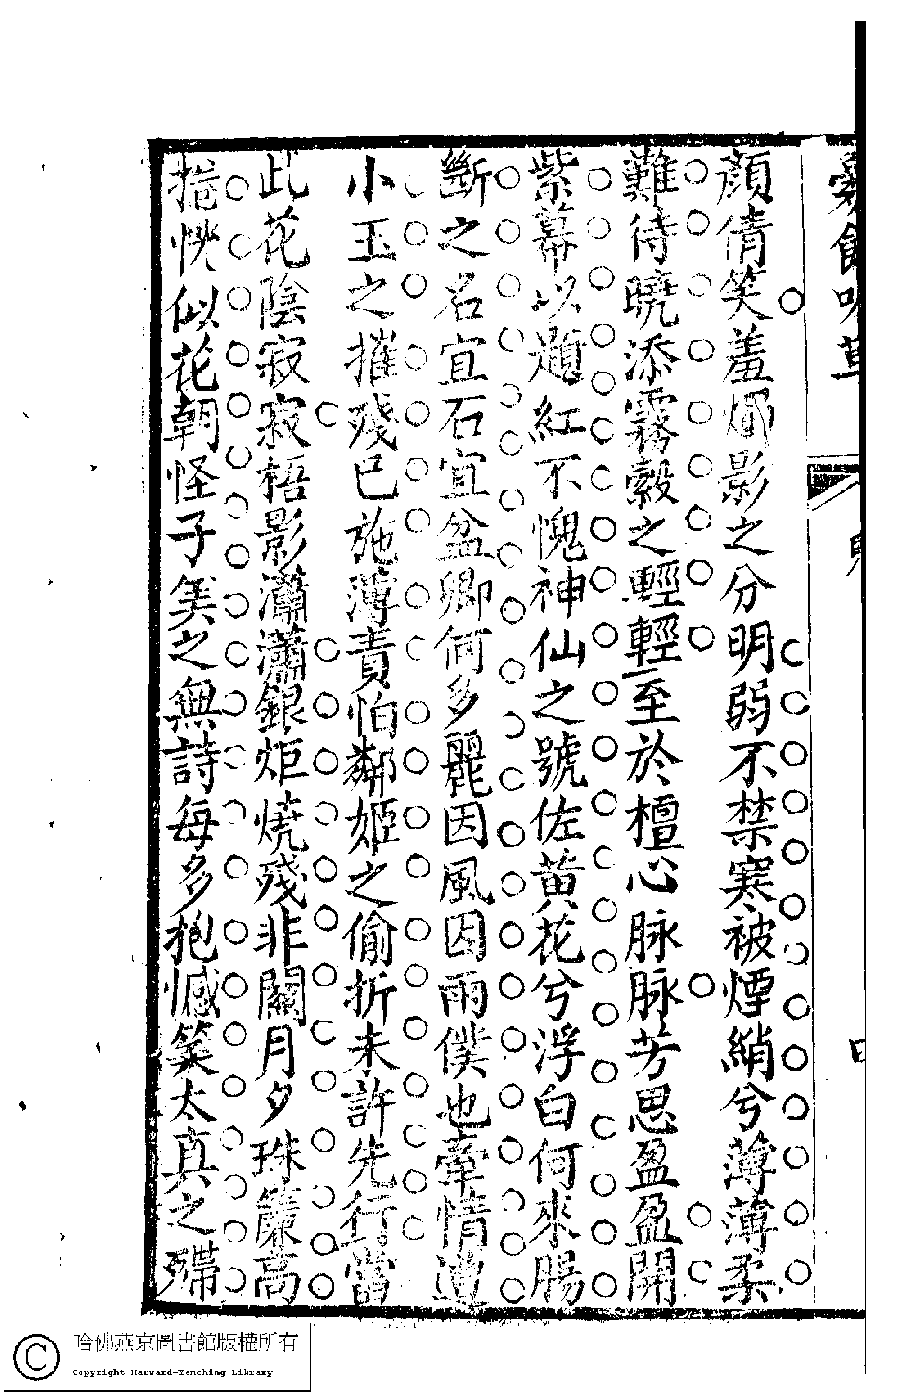 顔倩笑羞燭影之分明弱不禁寒被煙綃兮薄薄柔
難待曉添霧縠之輕輕至於檀心脉脉芳思盈盈開
紫幕以題紅不愧神仙之號佐黄花兮浮白何來腸
斷之名宜石宜盆卿何多麗因風因雨僕也牽情遭
小玉之摧殘已施薄責怕鄰姬之偷折未許先行當
此花陰寂寂梧影瀟瀟銀炬燒殘非關月夕珠簾高
捲怳似花朝怪子美之無詩每多抱憾笑太真之殢
哈佛燕京圖書館版權所有
Copyright Harvard-Yenching Library